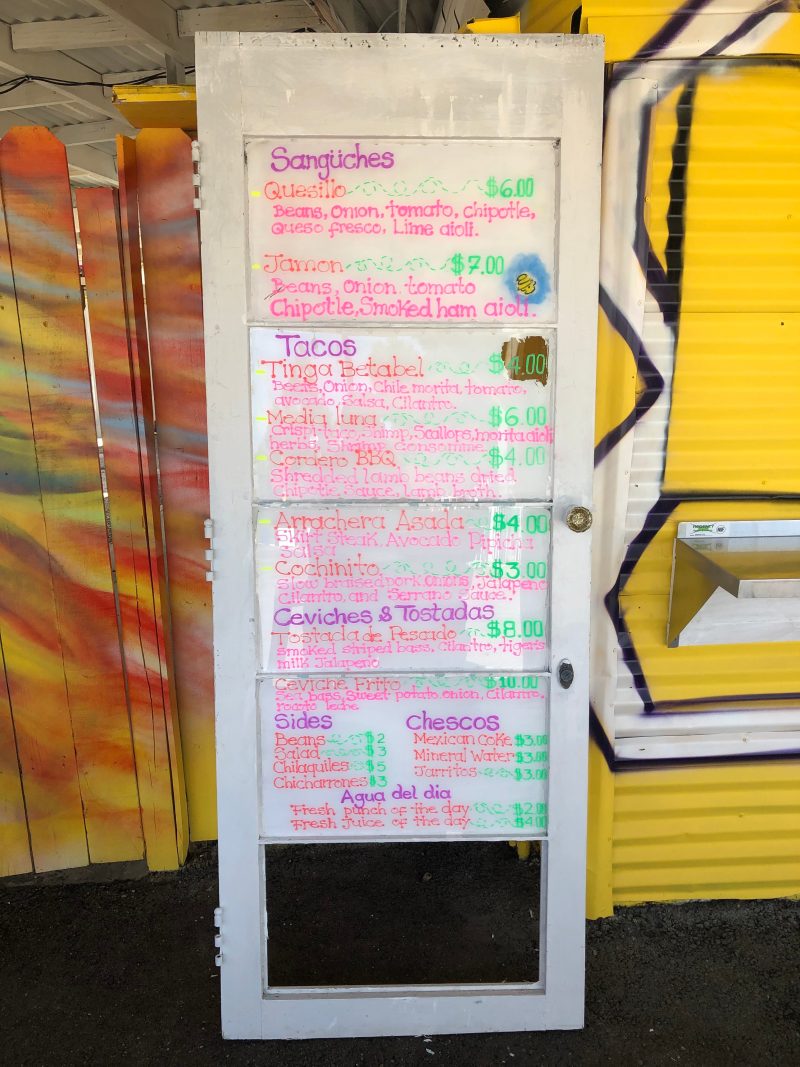 Sangüches
Quesillo $6.00
Beans, Onion, tomato, Chipotle,
Queso fresco, Lime aioli.
Jamon $7.00
Beans, onion tomato
Chipotle, Smoked ham aioli.
Tacos
Tinga Betabel $4.00
Beets, Onion, Chile morita, tomato,
avocado, Salsa, Cilantro.
Media luna $6.00
Crispi taco, Shimp, Scallops, morita aioli
herbs, consomme
Cordero BBQ $4.00
Shredded lamb beans dried
Chipotle, Sauce, lamb broth.
Arrachera Asada $4.00
Skirt Steak, Avocado Pipicha
Salsa
Cochinito $3.00
Slow braised pork, onions, Jalapeno
Cilantro, and Serrano Sauce!
Ceviches & Tostadas
Tostada de Pescado $8.00
Smoked striped bass, Cilantro, tiger's
milk Jalapeno
Ceviche Frito $10.00
Sea bass, Sweet potato, onion, Cilantro,
rocoto leche
Sides Chescos
Beans $2 Mexican Coke $3.00
Salad $3 Mineral Water $3.00
Chilaquiles $5 Jarritos $3.00
Chicharrones $3
Agua del dia
Fresh punch of the day $2.00
Fresh Juice of the day $4.00